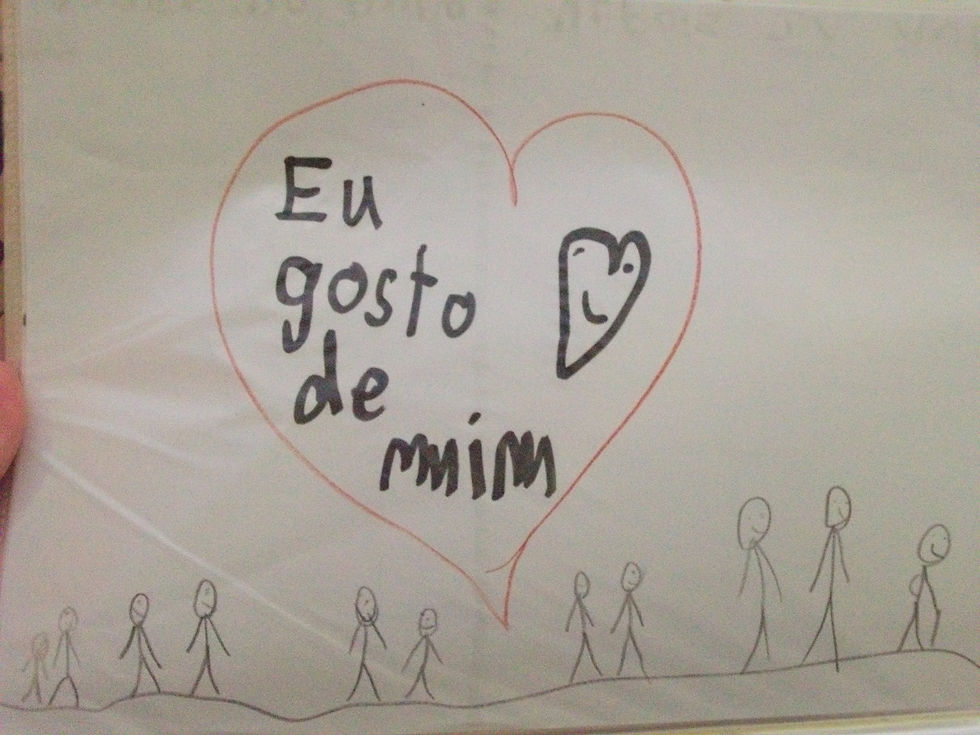 Eu
gosto
de
mim